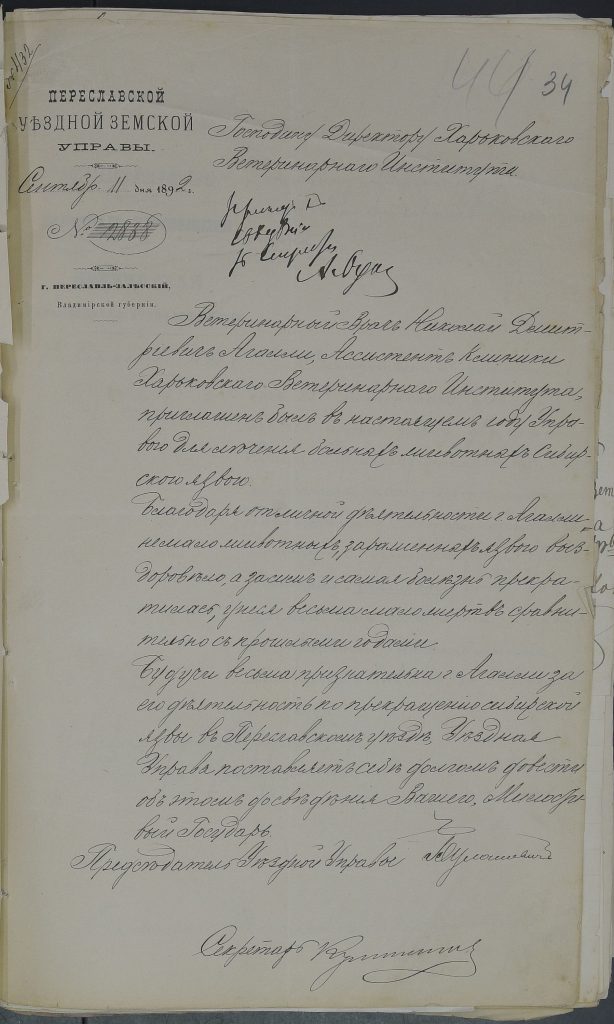 № 1132
44 34
ПЕРЕСЛАВСКОЙ
УѢЗДНОЙ ЗЕМСКОЙ
УПРАВЫ.
Сентябр. 11 дня 1892 г.
№ 12838
Г. ПЕРЕСЛАВЛЬ-ЗАЛѢССКІЙ,
Владимірской губерніи.
Господину Директору Харьковскаго
Ветеринарнаго Института
Ветеринарный Врачъ Николай Дмит-
ріевичъ Агалли, Ассистентъ Клиники
Харьковскаго Ветеринарнаго Института,
приглашенъ былъ въ настоящемъ году Упра-
вою для леченія больныхъ животныхъ Сибир-
скою язвою.
Благодаря отличной дѣятельности г. Агалли
не мало животныхъ, зараженныхъ язвою выз-
доровѣло, а засимъ и самая болѣзнь прекра-
тилась, унеся весьма мало жертвъ сравни-
тельно съ прошлыми годами.
Будучи весьма признательна г. Агалли за
его дѣятельность по прекращенію сибирской
язвы въ Переславскомъ уѣздѣ, Уѣздная
Управа поставляетъ себѣ долгомъ довести
объ этомъ до свѣдѣнія Вашего, Милости-
вый Государь.
Предсѣдатель Уѣздной Управы
Секретарь